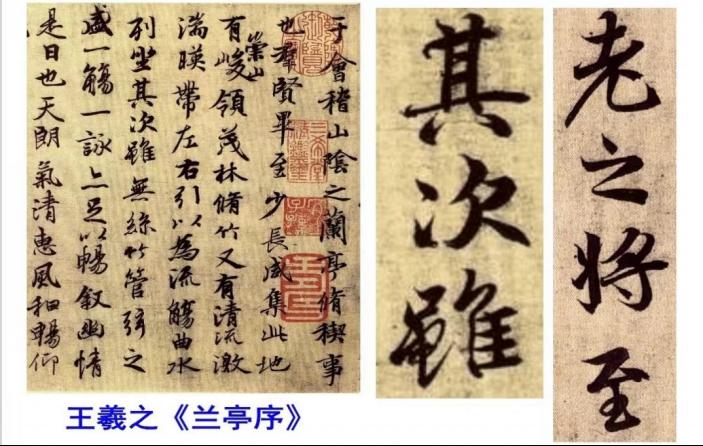 于會稽山陰之蘭亭脩稧事
也羣賢畢至少長咸集此地
有崇山峻領茂林脩竹又有清流激
湍暎帶左右引以為流觴曲水
列坐其次雖無絲竹管弦之
盛一觴一詠亦足以暢敘幽情
是日也天朗氣清惠風和暢仰
其次雖
老之将至
王羲之《兰亭序》